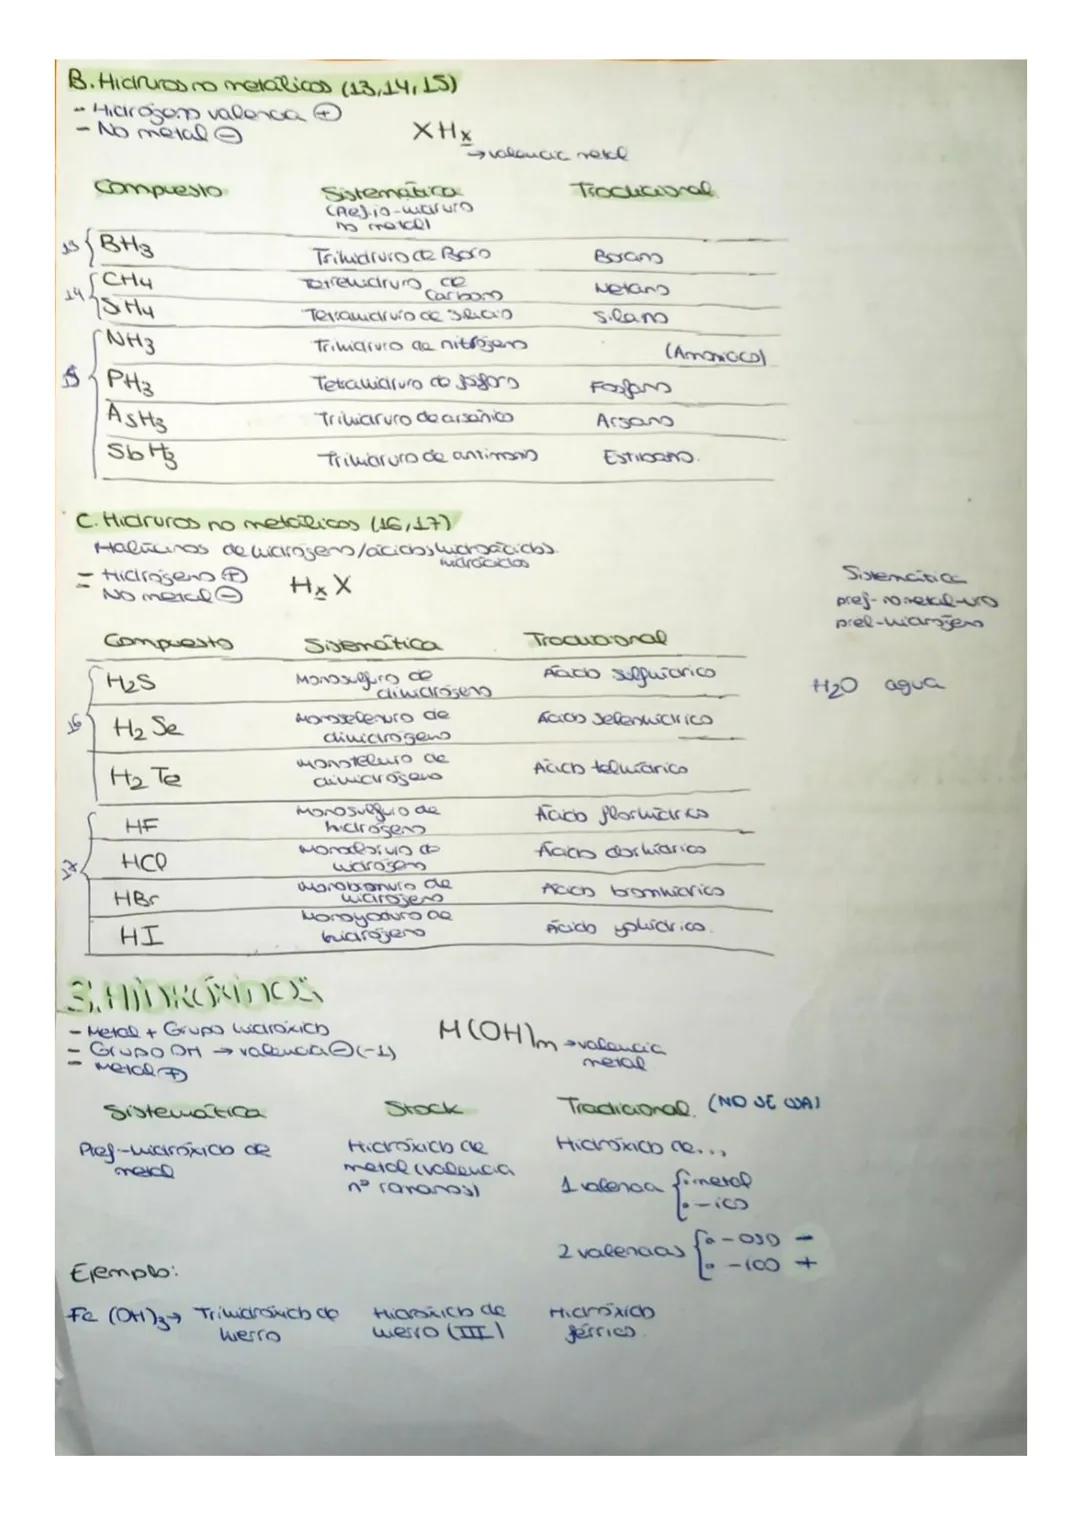 B. Hidruros no metálicos (13,14,15)
- Hidrógeno valencia ⊕
- No metal ⊖
XHx
→ valencia metal
Compuesto Sistemática Tradicional
(Prefijo-hidruro
no metal)
13 { BH3 Trihidruro de Boro Borano
14 { CH4 Tetrahidruro de Carbono Metano
SiH4 Tetrahidruro de silicio Silano
15 { NH3 Trihidruro de nitrógeno (Amoniaco)
PH3 Tetrahidruro de fósforo Fosfano
AsH3 Trihidruro de arsénico Arsano
SbH3 Trihidruro de antimonio Estibano.
C. Hidruros no metálicos (16,17)
de hidrógeno/ácidos hidrácidos.
hidrácidos
- Hidrógeno ⊕
- No metal ⊖
HxX
Sistemática
pref-no metal-uro
pref-hidrógeno
H2O agua
Compuesto Sistemática Tradicional
16 { H2S Monosulfuro de dihidrógeno Ácido sulfhídrico
H2Se Monoselenuro de dihidrógeno Ácido selenhídrico
H2Te Monoteluro de dihidrógeno Ácido telhídrico
17 { HF Monosulfuro de hidrógeno Ácido florhídrico
HCl Monocloruro de hidrógeno Ácido clorhídrico
HBr Monobromuro de hidrógeno Ácido bromhídrico
HI Monoyoduro de hidrógeno Ácido yohídrico.
3. HIDRÓXIDOS
- Metal + Grupo hidróxido
- Grupo OH → valencia ⊖ (-1)
- Metal ⊕
M(OH)m → valencia
metal
Sistemática Stock Tradicional (NO SE USA)
Pref-hidróxido de
metal
Hidróxido de
metal (valencia
nº romanos)
Hidróxido de...
1 valencia { · metal
· -ico
2 valencias { · -oso -
· -ico +
Ejemplo:
Fe (OH)3 → Trihidróxido de
hierro
Hidróxido de
hierro (III)
Hidróxido
férrico.